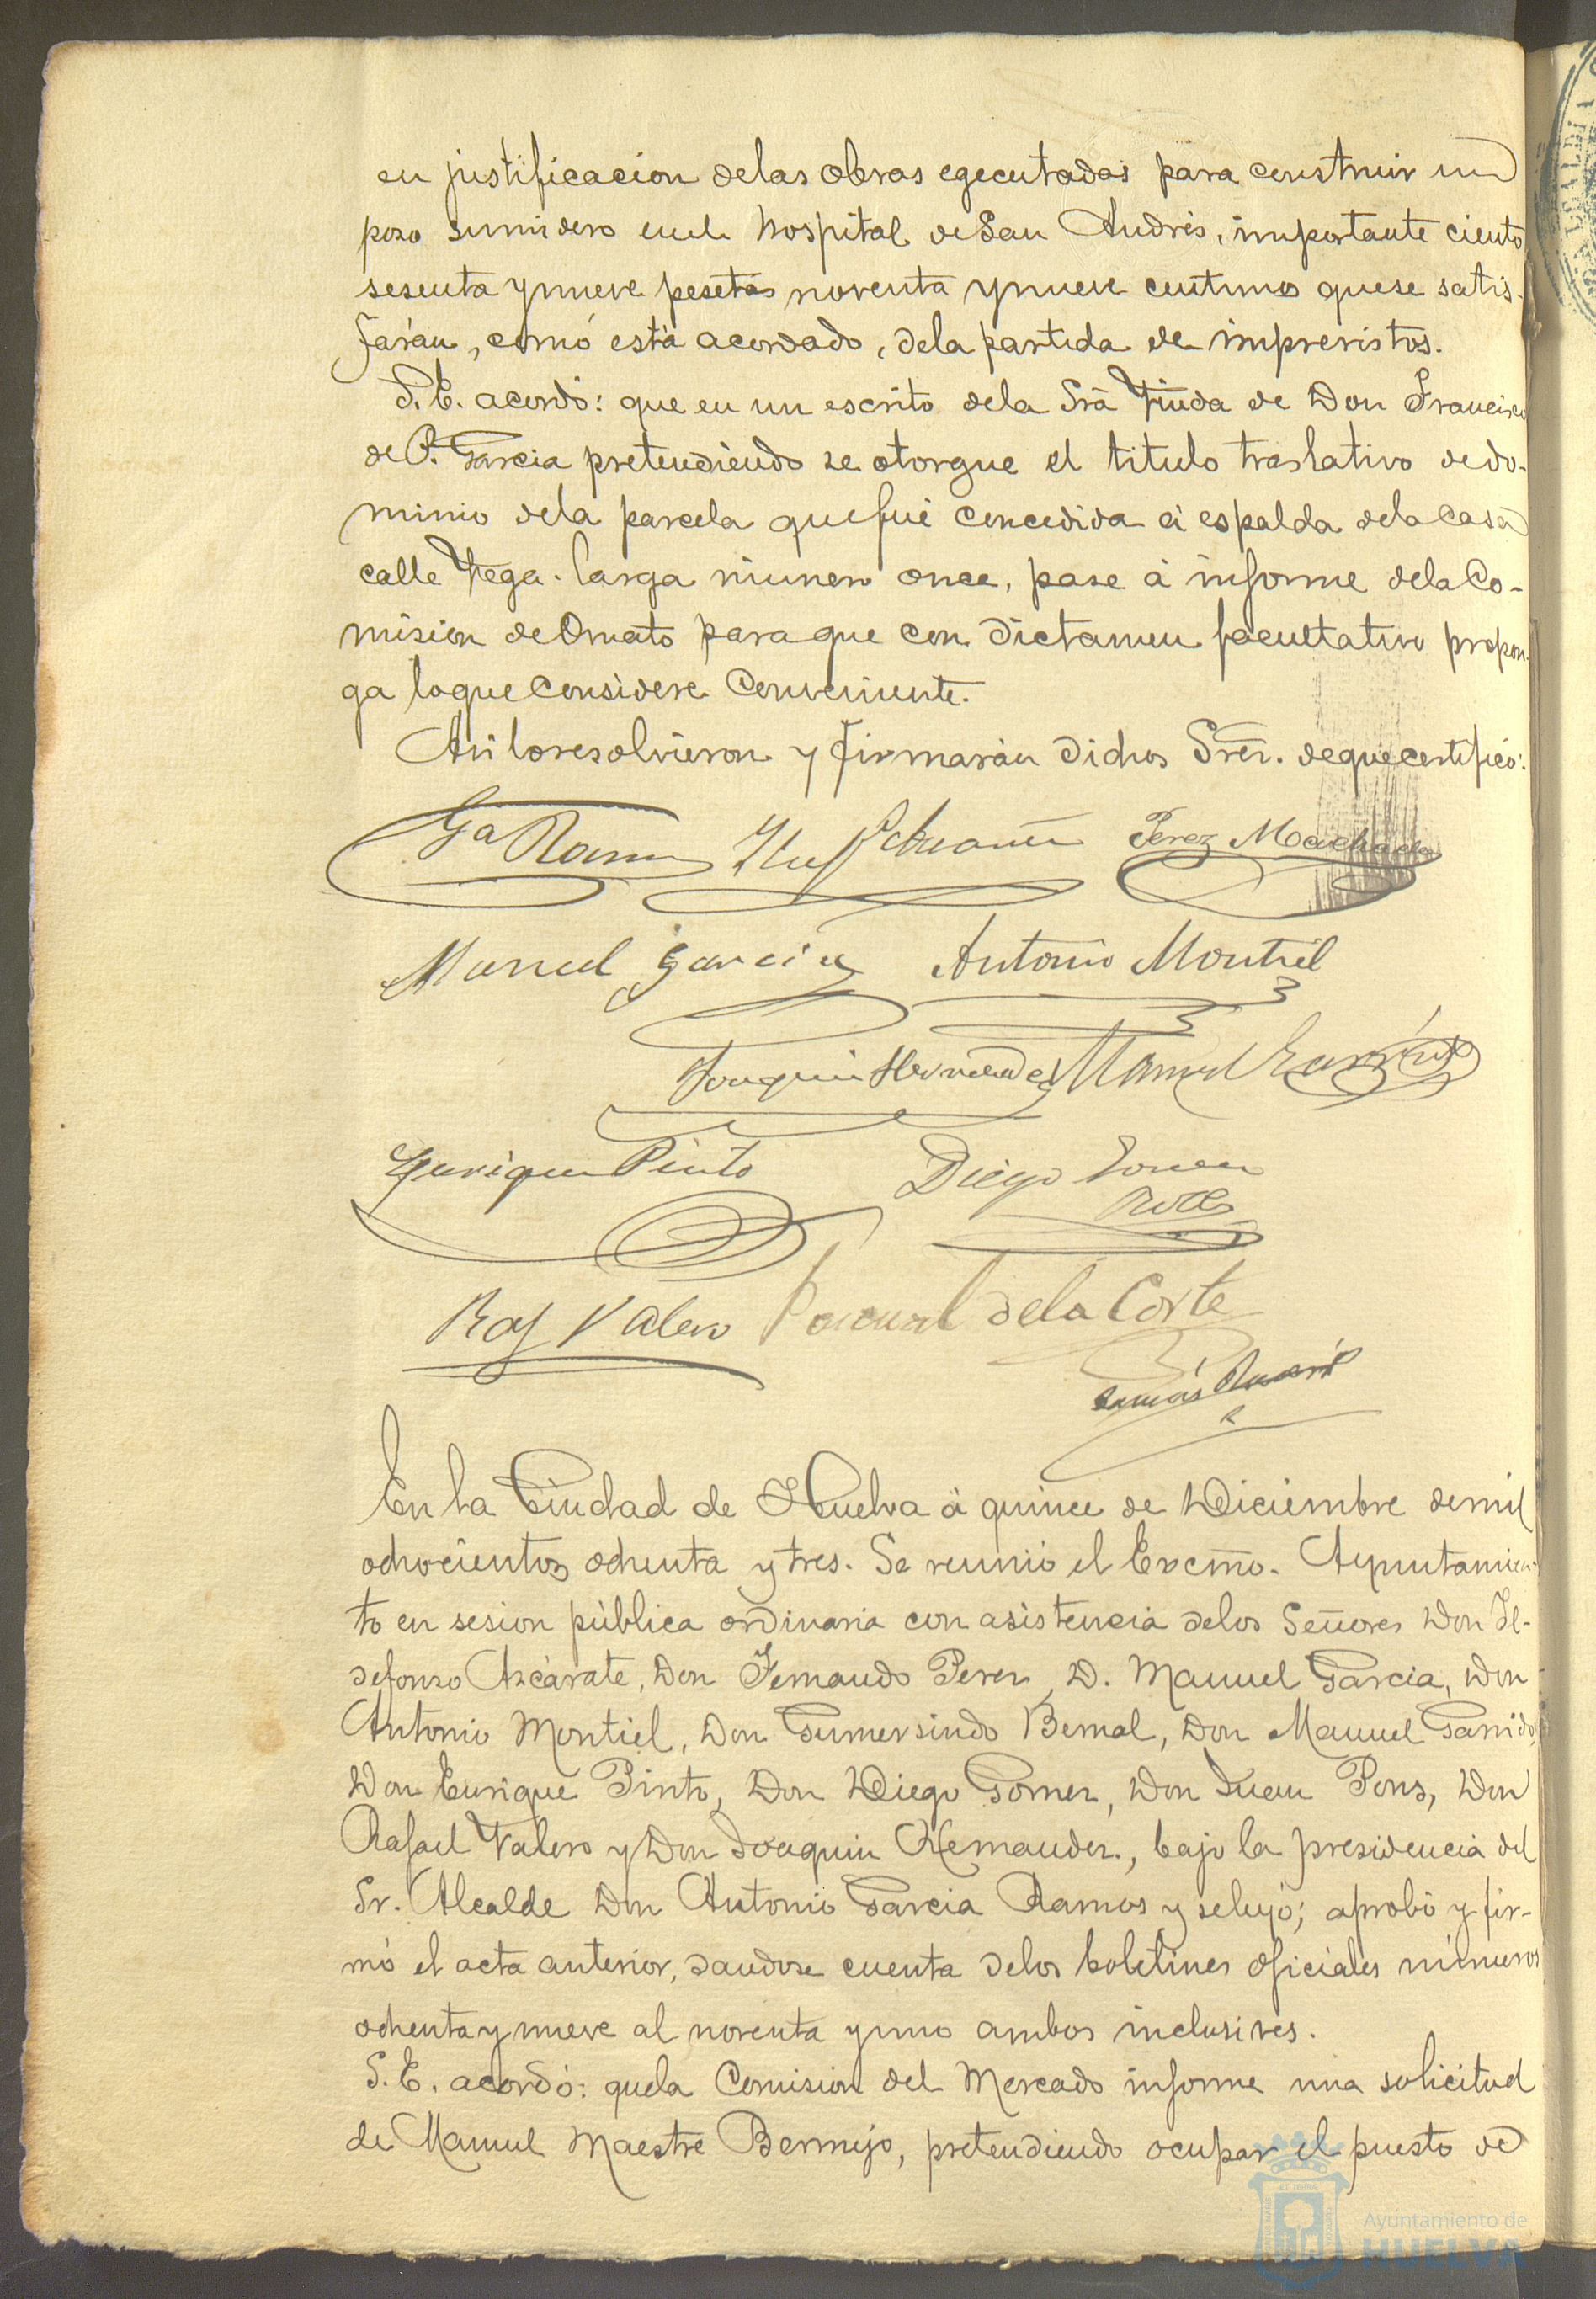 en justificacion delas obras egecutadas para construir un
pozo sumidero enel hospital de San Andrés, importante ciento
sesenta y nueve pesetas noventa y nueve centimos que se satis-
farán, como está acordado, dela partida de imprevistos.
S. E. acordó: que en un escrito dela Srã Viuda de Don Francisco
de P. Garcia pretendiendo se otorgue el titulo traslativo de do-
minio dela parcela que fué concedida á espalda dela casa
calle Vega-larga número once, pase á informe dela Co-
mision de Ornato para que con dictamen facultativo propon-
ga lo que considere conveniente.
Asi lo resolvieron y firmarán dichos Sres. de que certifico:
Gª Ramos Perez Machado
Manuel Garcia Antonio Montiel
Joaquin Hernandez Manuel Garrido
Enrique Pinto Diego Gomez
Raf Valero Pascual dela Corte
En la Ciudad de Huelva á quince de Diciembre de mil
ochocientos ochenta y tres. Se reunió el Excmo. Ayuntamien-
to en sesion pública ordinaria con asistencia delos Señores Don Il-
defonso Azcárate, Don Fernando Perez, D. Manuel Garcia, Don
Antonio Montiel, Don Gumersindo Bernal, Don Manuel Garrido,
Don Enrique Pinto, Don Diego Gomez, Don Juan Pons, Don
Rafael Valero y Don Joaquin Hernandez., bajo la presidencia del
Sr. Alcalde Don Antonio Garcia Ramos y se leyó; aprobó y fir-
mó el acta anterior, dandose cuenta delos boletines oficiales números
ochenta y nueve al noventa y uno ambos inclusives.
S. E. acordó: que la Comision del Mercado informe una solicitud
de Manuel Maestre Bermejo, pretendiendo ocupar el puesto de
Ayuntamiento de
HUELVA